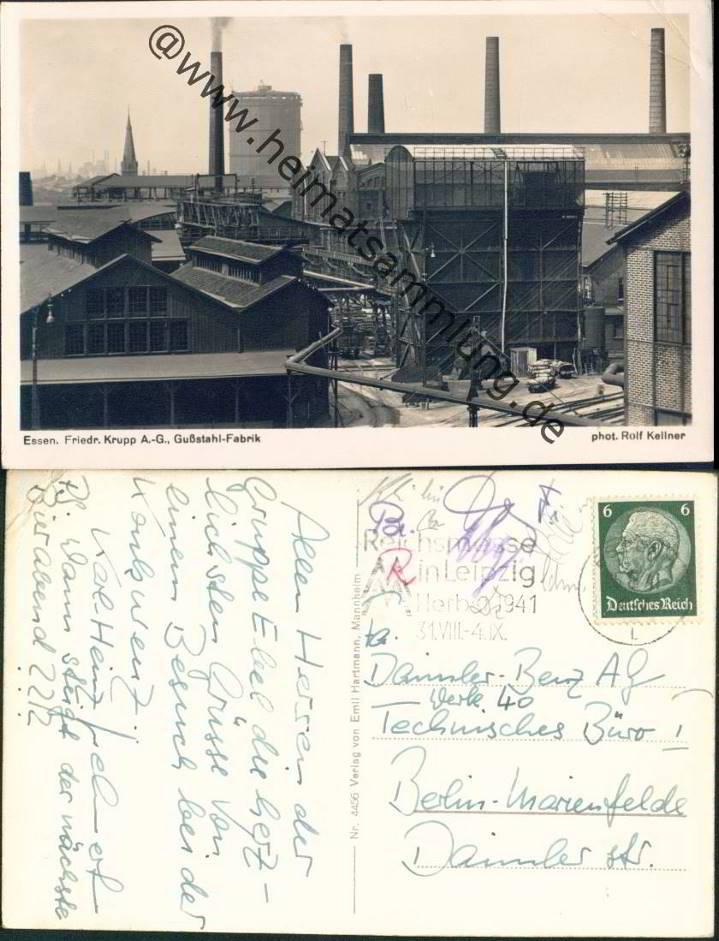 @www.heimatsammlung.de
Essen. Friedr. Krupp A.-G., Gußstahl-Fabrik
phot. Rolf Kellner
Allen Herren der
Gruppe Ebel die herz-
lichsten Grüsse von
einem Besuch bei der
Konkurrenz.
Karl Heinz
P.S. Wann steigt der nächste
Bierabend ???
Nr. 4456 Verlag von Emil Hartmann, Mannheim
Reichsmesse
in Leipzig
Herbst 1941
31.VIII.-4.IX.
6 6
Deutsches Reich
Daimler-Benz AG
Werk 40
Technisches Büro I
Berlin-Marienfelde
Daimler str.